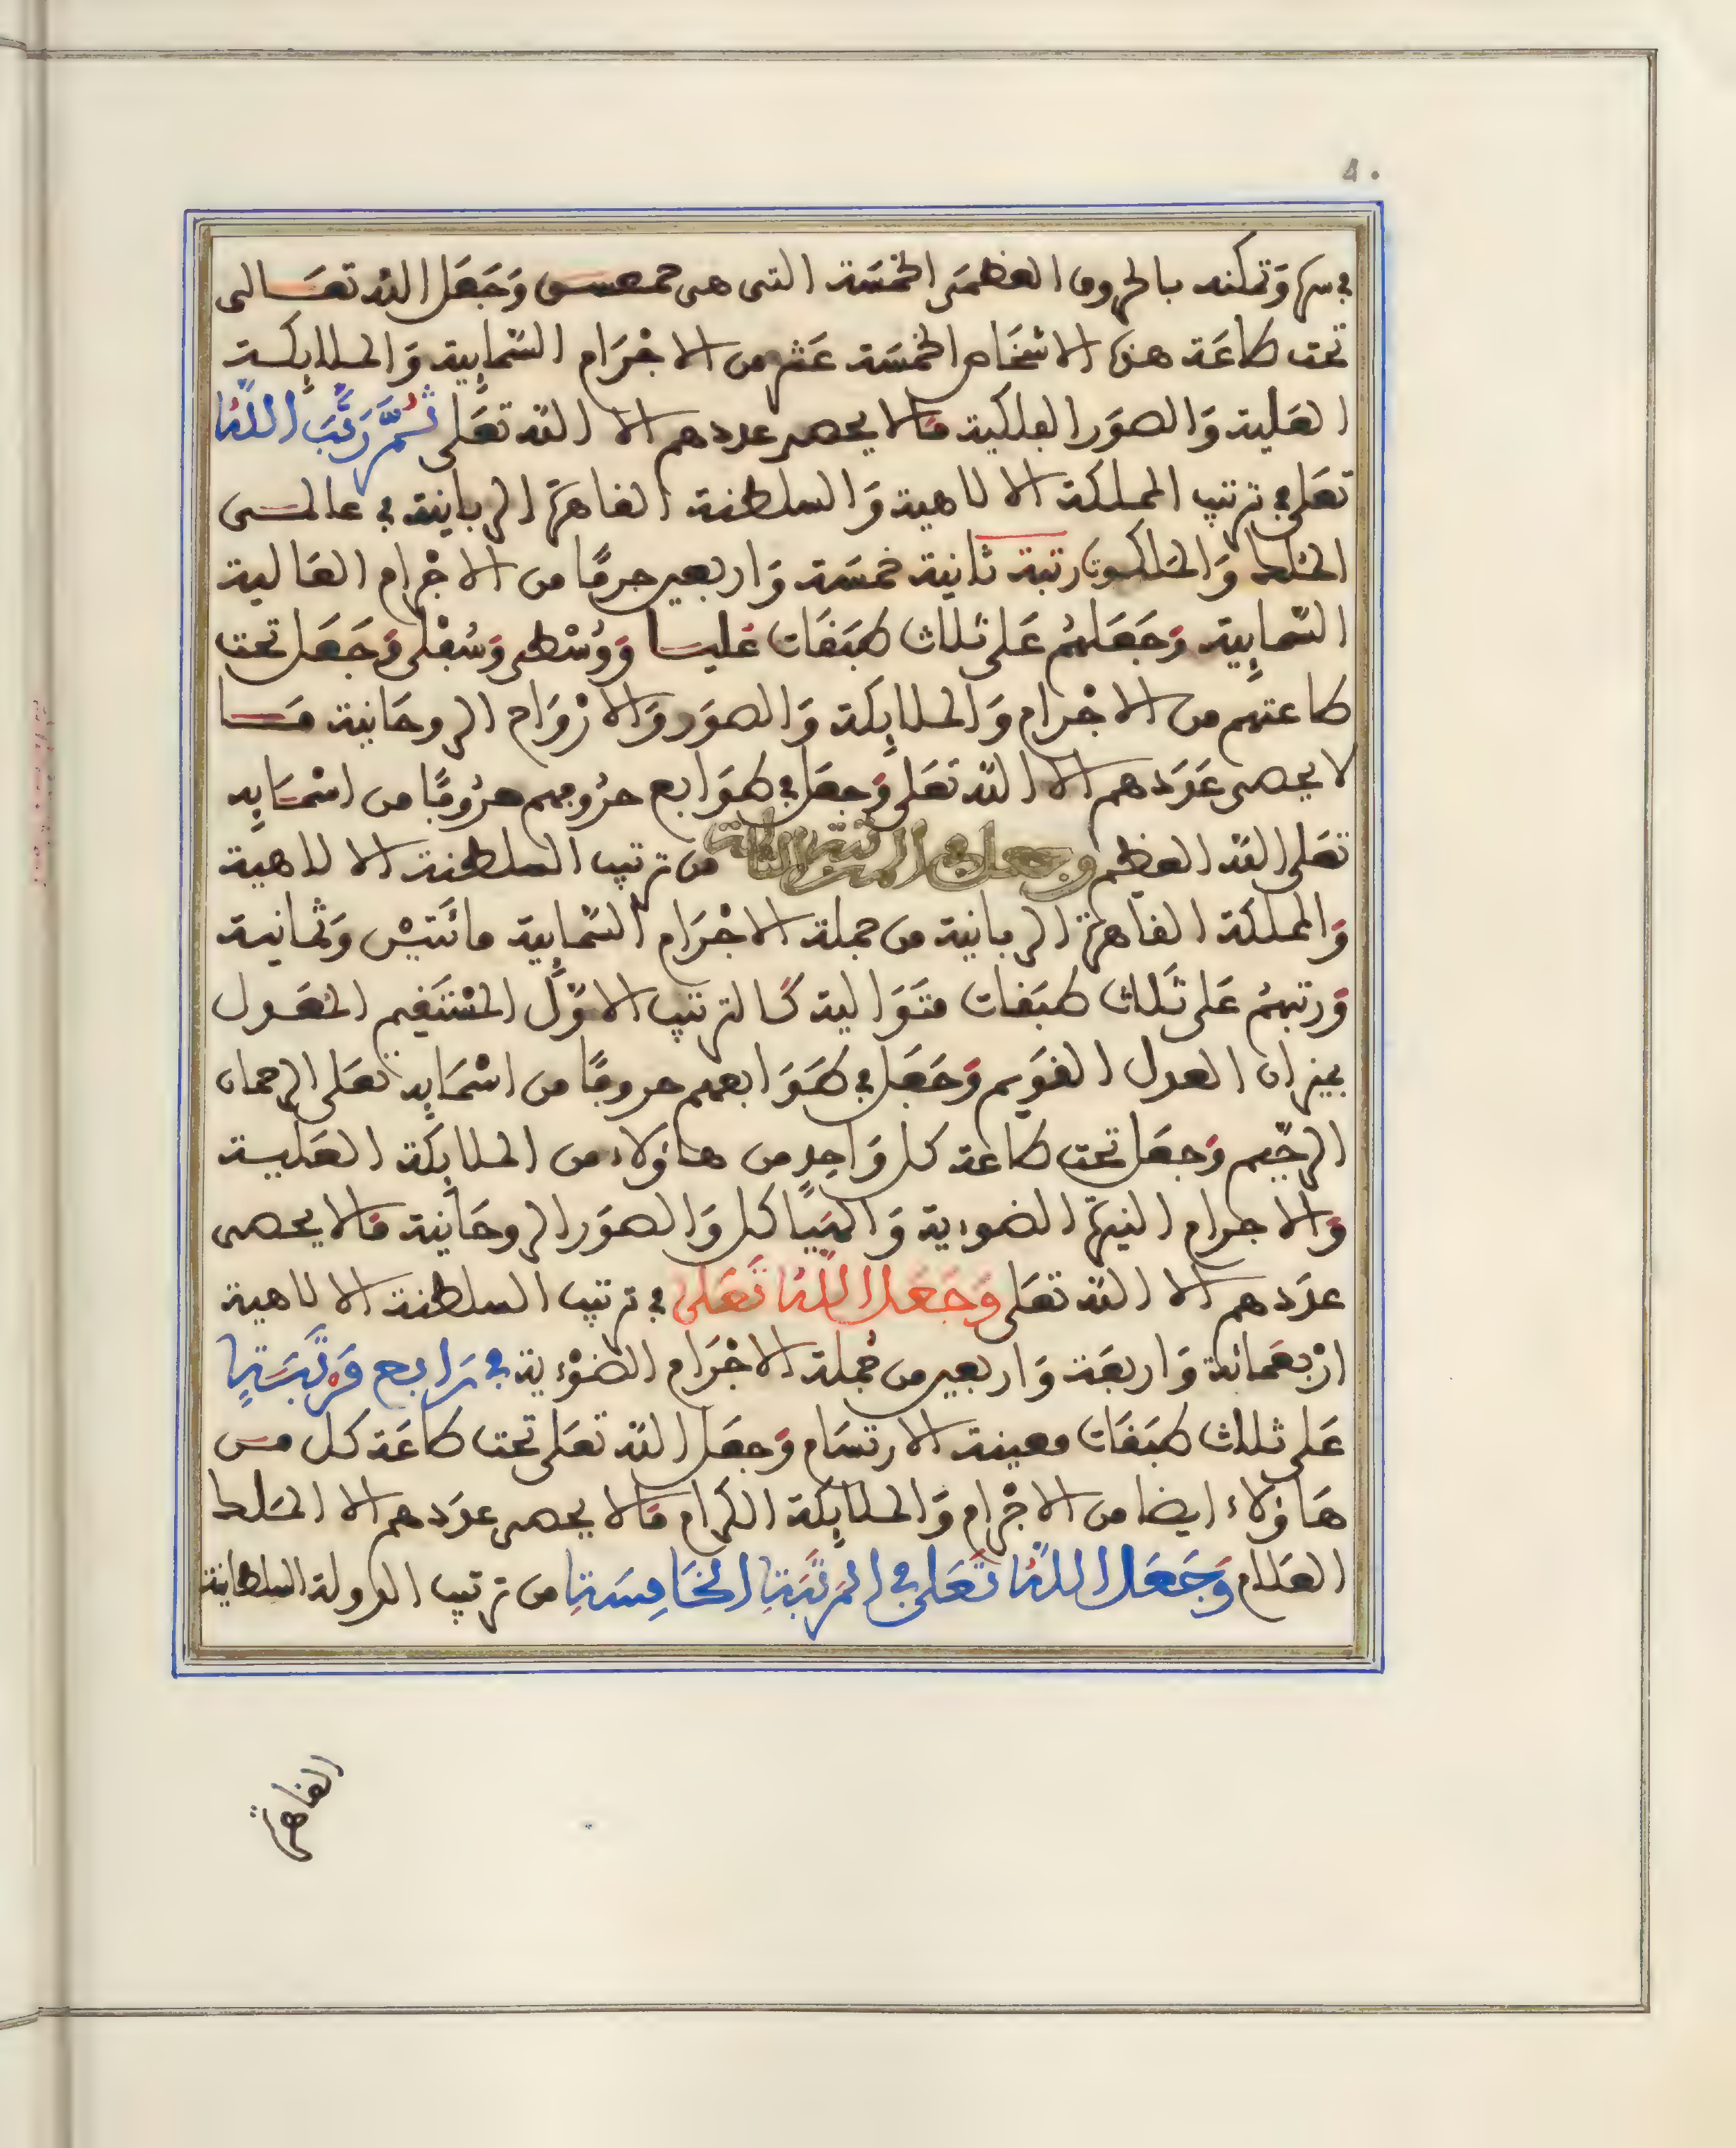 في سرها وتمكنه بالحروف العظمى الخمسة التى هى حمعسق وَجَعَل الله تعَالى
تحت طاعَة هذه الاشخاص الخمسَة عَشر من الاجْرَام السّمايية وَالملايكة
العَلية وَالصوَر الفلكية مَا لا يحصر عددهم الا الله تعَلى ثُمَّ رَتَّبَ اللَّهُ
تعَلى في ترتيب المملكة الالاهية وَالسلطنة القاهرة الربانية في عالمى
الملك وَالملكوت رتبة ثانية خمسَة وَاربعين جرمًا من الاجْرام العَالية
السّمايية وَجَعَلهُم عَلى ثلاث طبَقَات عُليا وَوُسْطى وَسُفْلى وَجَعَل تحت
طاعتهم من الاجْرام وَالملايِكة وَالصوَر وَالازْوَاج الروحَانية مَا
لا يحصى عَدَدهم الا الله تعَلى وَجعَل في طوَابع حرُوفهم حرُوفًا من اسْمَايِه
تعَلى الله العظيم وجعل في المرتبة الثالثة من ترتيب السلطنة الالاهية
وَالمملكة القاهرة الربانية من جملة الاجْرَام السّمايية مائتيْن وَثمانية
وَرتبهُم عَلى ثَلاث طبَقات متوَالية كَالترتيب الاوَّل المسْتَقيم المعَدول
بميزان العدل القوَيم وَجَعَل في طوَابعهم حروفًا من اسْمَايِه تعَلى الرحمان
الرحِيم وَجعَل تحت طاعة كل وَاحِدٍ من هاؤلاء من الملايِكة العَلية
وَالاجرام النيرة الضوءية وَالهَيَاكل وَالصوَر الروحَانية مَا لا يحصى
عدَدهم الا الله تعَلى وَجَعَلَ اللَّهُ تَعَلى في ترتيب السلطنة الالاهية
ارْبعَمائة وَاربعَة وَاربعين من جُملة الاجْرَام الضوْءية في رَابع مَرْتَبَةٍ
عَلى ثلاث طبَقَات معينة الارتسَام وَجعَل الله تعَلى تحت طاعَة كل من
هَاؤلاء ايضا من الاجْرام وَالملايِكة الكرام مَا لا يحصر عدَدهم الا الملك
العَلام وَجَعَلَ اللَّهُ تَعَلى في المَرْتَبَةِ الخَامِسَةِ من ترتيب الدولة السلطانية
القاهرة